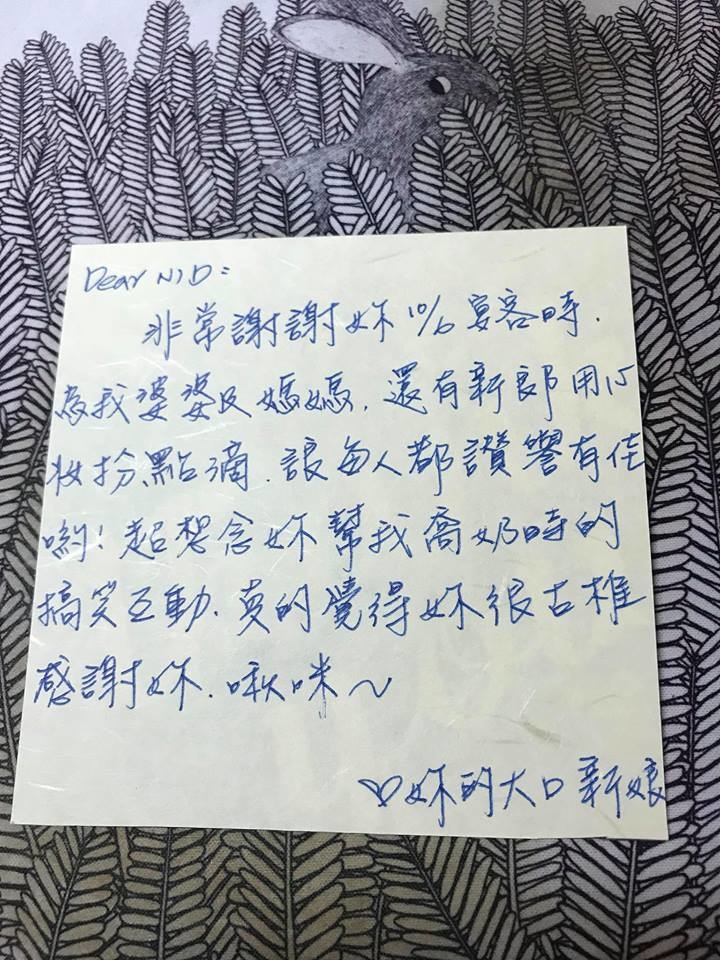 Dear NID:
非常謝謝妳 10/6 宴客時.
為我婆婆及媽媽, 還有新郎用心
妝扮點滴. 讓每人都讚響有佳
喲! 超想念妳幫我喬奶時的
搞笑互動. 真的覺得妳很古椎
感謝妳. 啾咪~
♡妳的大口新娘